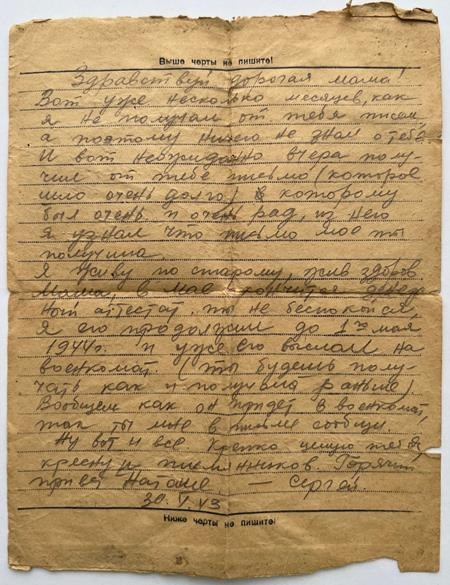 Выше черты не пишите!
Здравствуй дорогая мама!
Вот уже несколько месяцев, как
я не получал от тебя писем
а поэтому ничего не знал о тебе.
И вот неожиданно вчера полу-
чил от тебе письмо (которое
шло очень долго) которому
был очень и очень рад, из него
я узнал что письмо мое ты
получила.
Я живу по старому, жив здоров
Мама, в мае кончится
ной аттестат. ты не беспокойся,
Я его продолжил до 1го мая
1944г. и уже его выслал на
военкомат. (ты будешь полу-
чать как и получала раньше)
Вообщем как он придет в военкомат,
так ты мне в письме сообщи.
Ну вот и все Крепко целую тебя,
и племянников. Горячий
привет Наташе — Сергей.
30.V.43
Ниже черты не пишите!